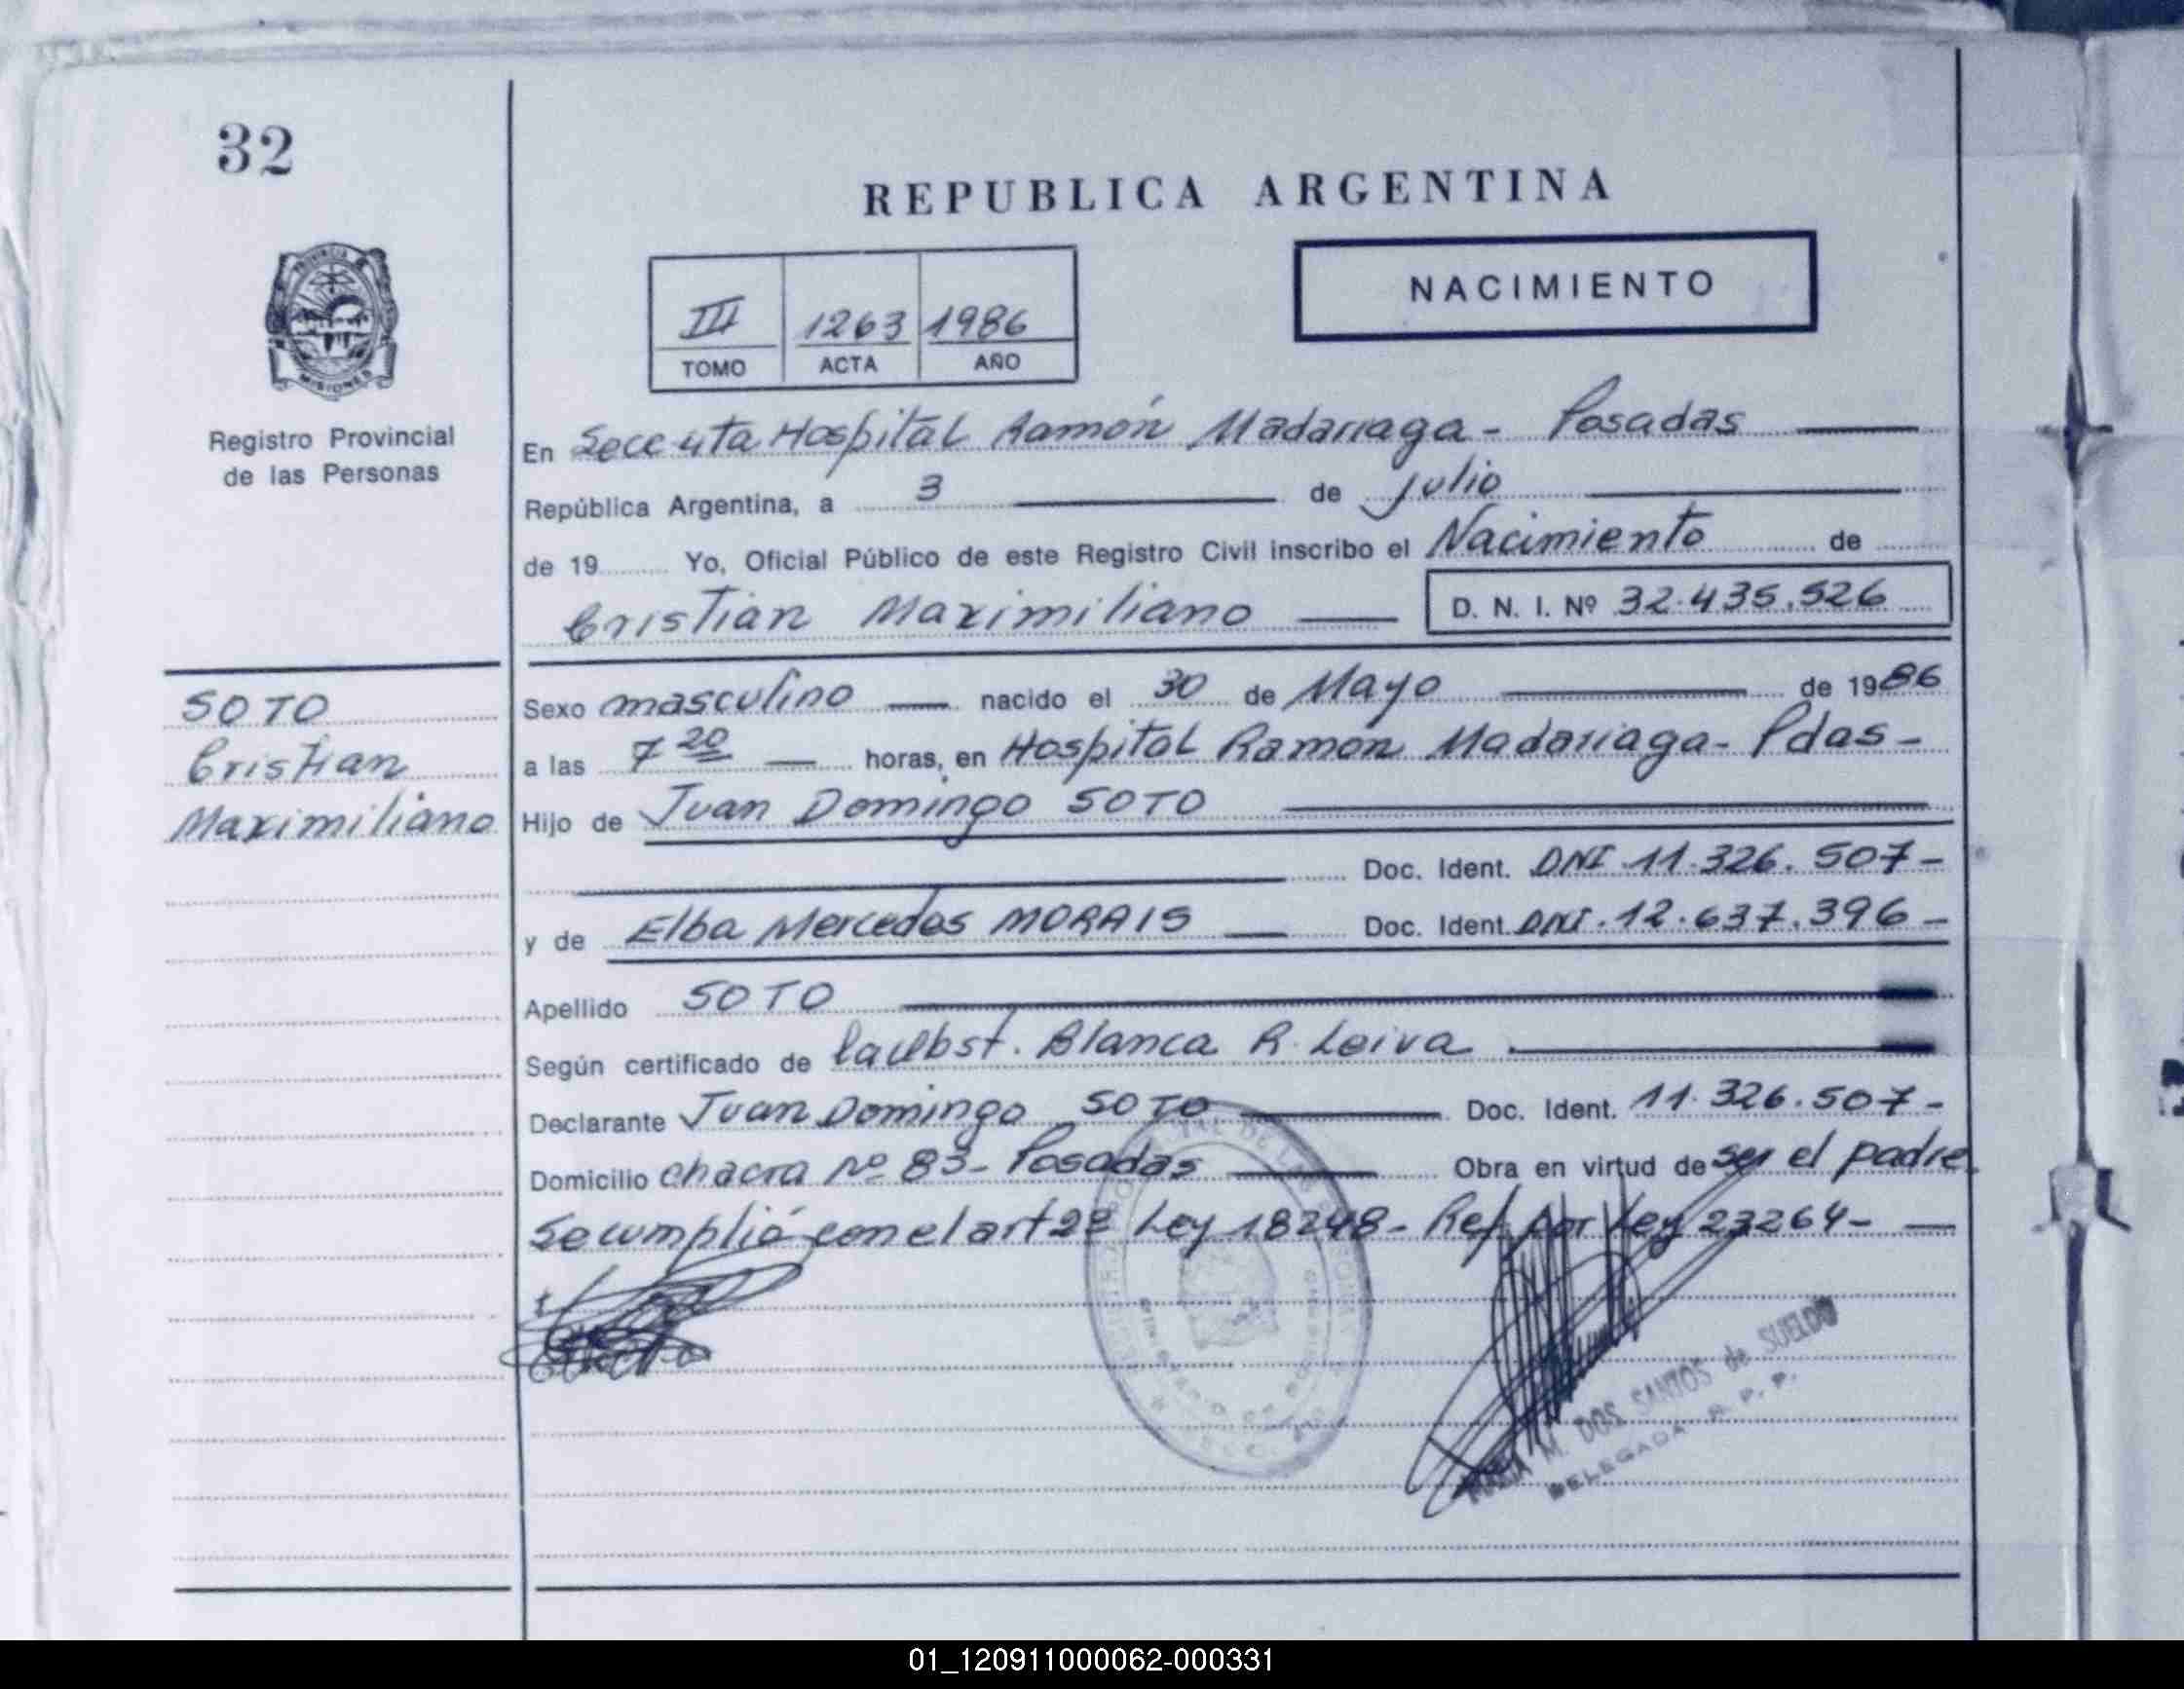 32
REPUBLICA ARGENTINA
PROVINCIA DE
MISIONES
Registro Provincial
de las Personas
III 1263 1986
TOMO ACTA AÑO
NACIMIENTO
En Secc 4ta Hospital Ramón Madariaga - Posadas
República Argentina, a 3 de julio
de 19 Yo, Oficial Público de este Registro Civil inscribo el Nacimiento de
Cristian Maximiliano D. N. I. Nº 32.435.526
SOTO
Cristian
Maximiliano
Sexo masculino nacido el 30 de Mayo de 1986
a las 7 20 horas, en Hospital Ramón Madariaga - Pdas -
Hijo de Juan Domingo SOTO
Doc. Ident. DNI 11.326.507 -
y de Elba Mercedes MORAIS Doc. Ident. DNI. 12.637.396 -
Apellido SOTO
Según certificado de la Obst. Blanca R. Leiva
Declarante Juan Domingo SOTO Doc. Ident. 11.326.507 -
Domicilio chacra Nº 83 - Posadas Obra en virtud de ser el padre
Se cumplió con el art 2º Ley 18248 - Ref. por Ley 23264 -
M. DOS SANTOS de SUELDO
DELEGADA R. P. P.
01_120911000062-000331